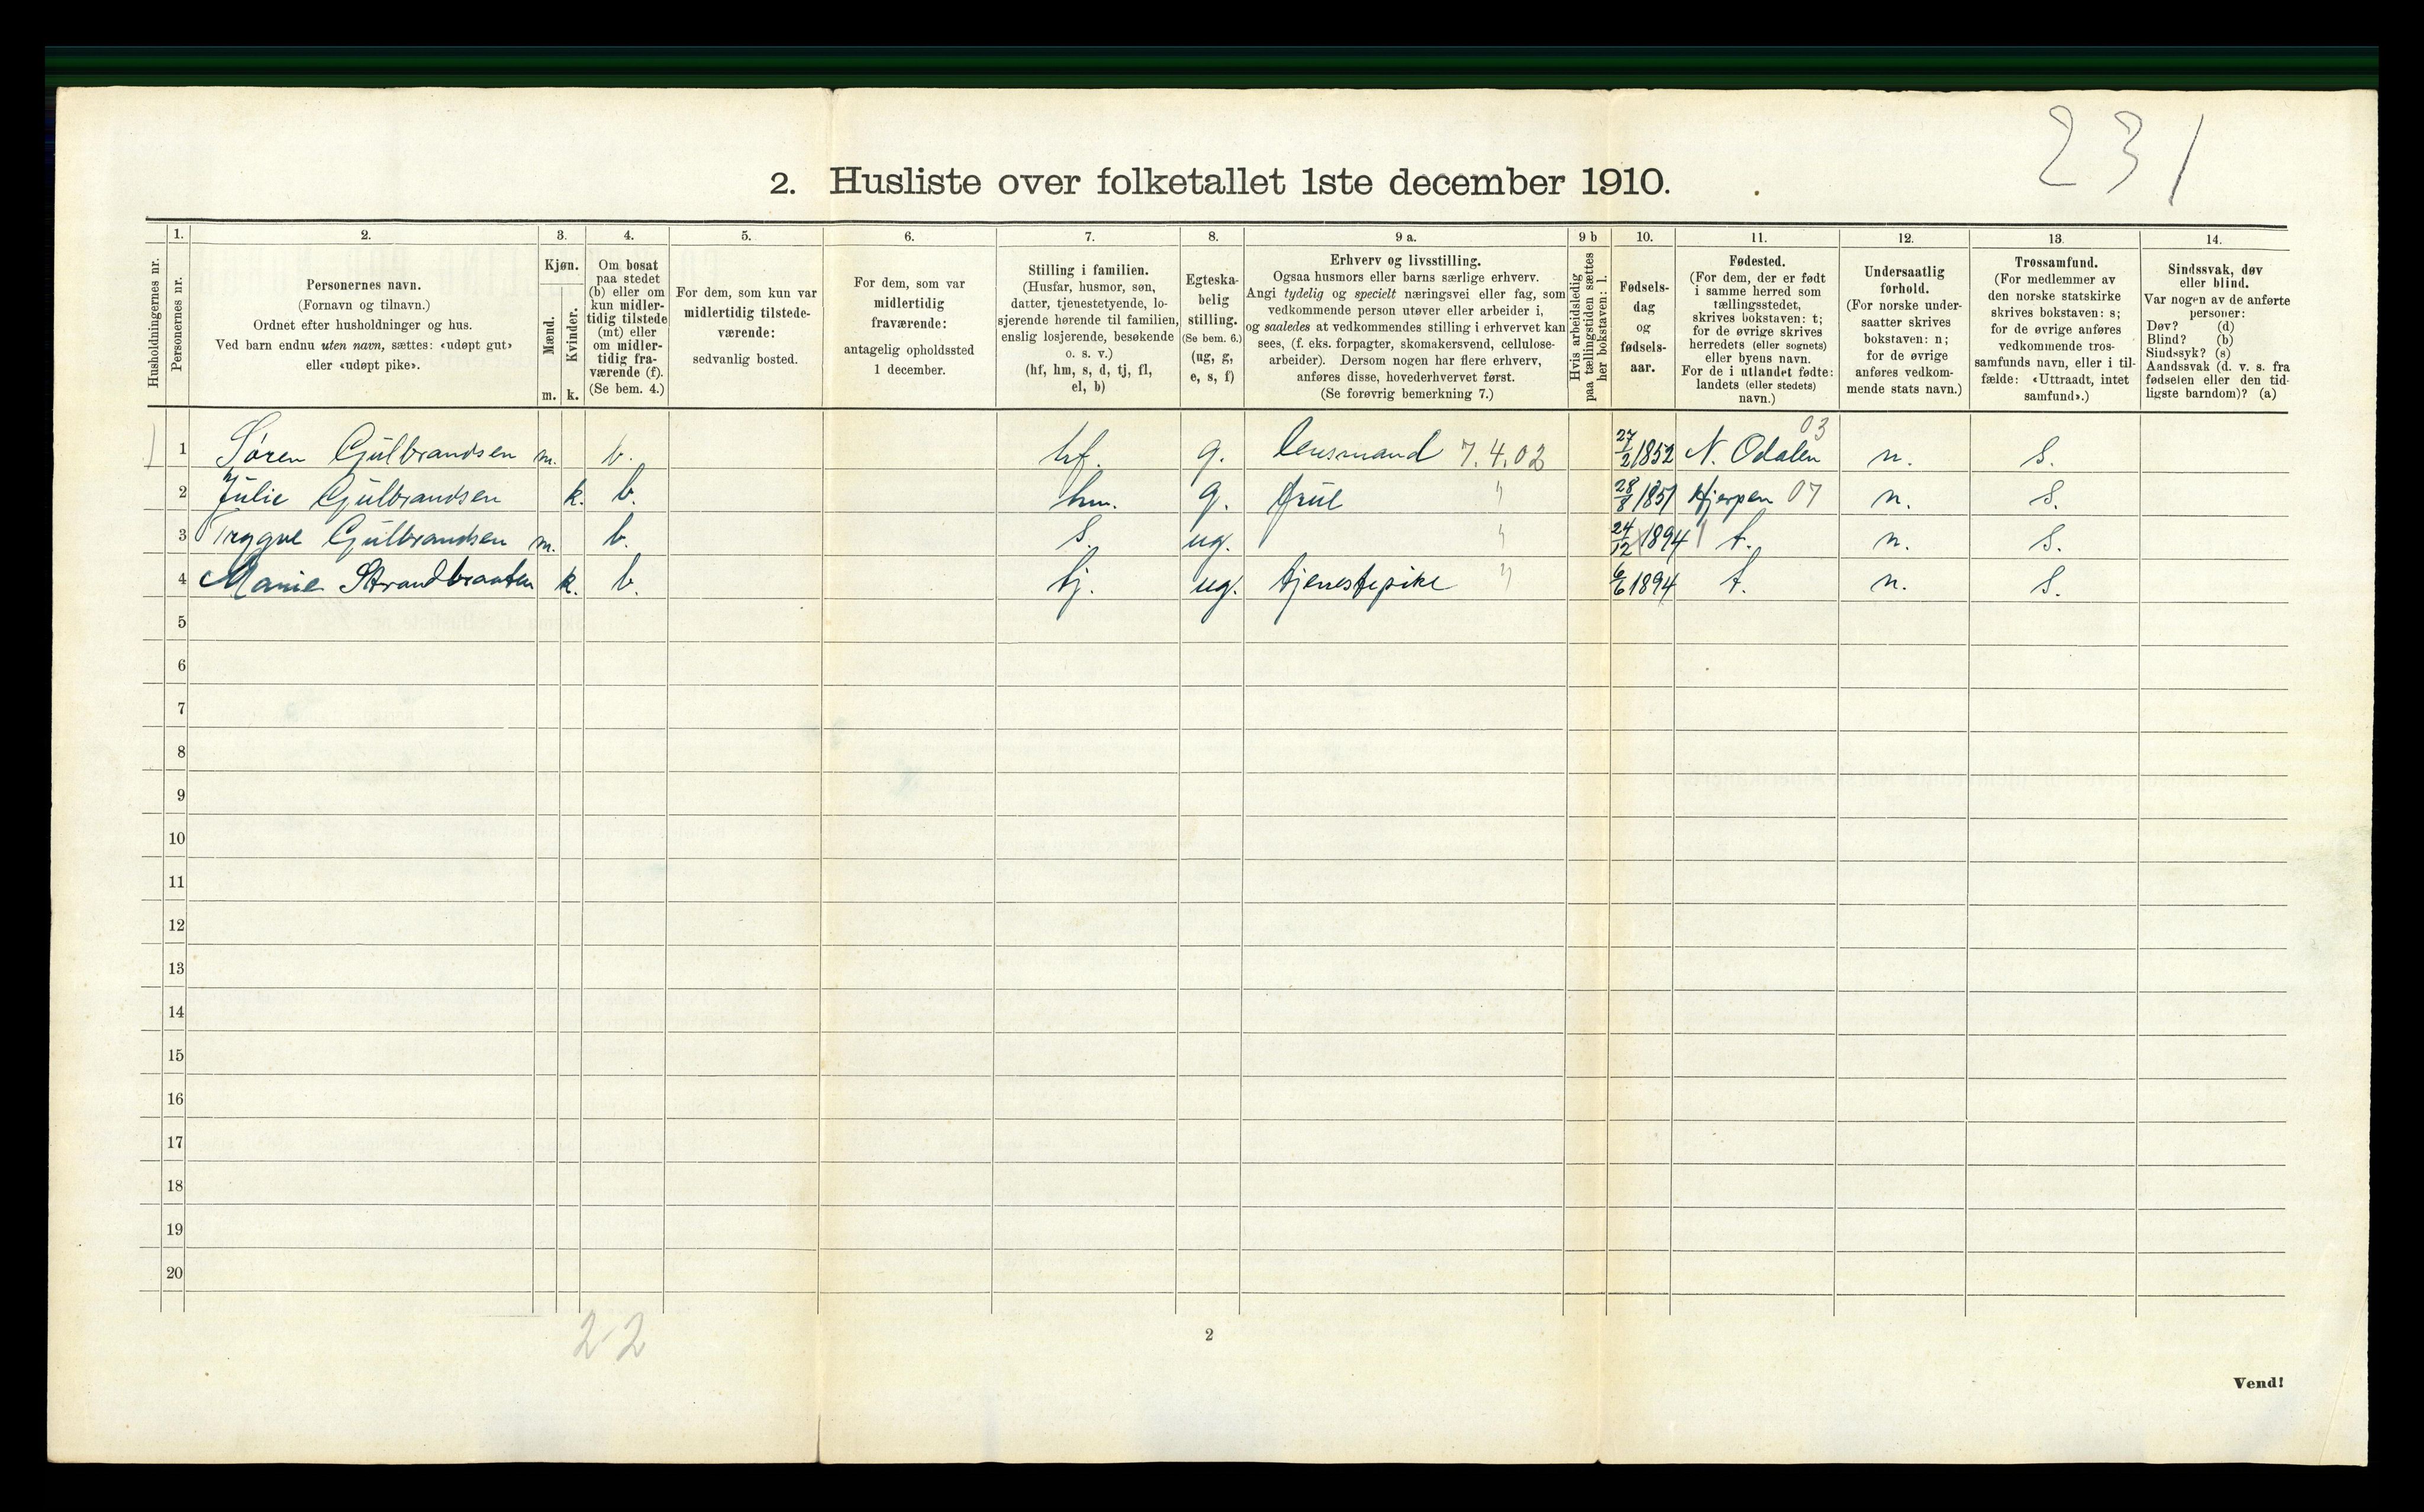 231
2. Husliste over folketallet 1ste december 1910.
Husholdningernes nr.
1. Personernes nr.
2. Personernes navn. (Fornavn og tilnavn.) Ordnet efter husholdninger og hus. Ved barn endnu uten navn, sættes: «udøpt gut» eller «udøpt pike».
3. Kjøn. Mænd. m. Kvinder. k.
4. Om bosat paa stedet (b) eller om kun midler-tidig tilstede (mt) eller om midler-tidig fra-værende (f). (Se bem. 4.)
5. For dem, som kun var midlertidig tilstede-værende: sedvanlig bosted.
6. For dem, som var midlertidig fraværende: antagelig opholdssted 1 december.
7. Stilling i familien. (Husfar, husmor, søn, datter, tjenestetyende, lo-sjerende hørende til familien, enslig losjerende, besøkende o. s. v.) (hf, hm, s, d, tj, fl, el, b)
8. Egteska-belig stilling. (Se bem. 6.) (ug, g, e, s, f)
9 a. Erhverv og livsstilling. Ogsaa husmors eller barns særlige erhverv. Angi tydelig og specielt næringsvei eller fag, som vedkommende person utøver eller arbeider i, og saaledes at vedkommendes stilling i erhvervet kan sees, (f. eks. forpagter, skomakersvend, cellulose-arbeider). Dersom nogen har flere erhverv, anføres disse, hovederhvervet først. (Se forøvrig bemerkning 7.)
9 b Hvis arbeidsledig paa tællingstiden sættes her bokstaven: l.
10. Fødsels-dag og fødsels-aar.
11. Fødested. (For dem, der er født i samme herred som tællingsstedet, skrives bokstaven: t; for de øvrige skrives herredets (eller sognets) eller byens navn. For de i utlandet fødte: landets (eller stedets) navn.)
12. Undersaatlig forhold. (For norske under-saatter skrives bokstaven: n; for de øvrige anføres vedkom-mende stats navn.)
13. Trossamfund. (For medlemmer av den norske statskirke skrives bokstaven: s; for de øvrige anføres vedkommende tros-samfunds navn, eller i til-fælde: «Uttraadt, intet samfund».)
14. Sindssvak, døv eller blind. Var nogen av de anførte personer: Døv? (d) Blind? (b) Sindssyk? (s) Aandssvak (d. v. s. fra fødselen eller den tid-ligste barndom)? (a)
1 Søren Gulbrandsen m. b. hf. g. lensmand 7.4.02 27/2 1852 N. Odalen 03 n. S.
2 Julie Gulbrandsen k. b. hm. g. frue " 28/8 1851 Hjerpen 07 n. S.
3 Trygve Gulbrandsen m. b. S. ug. " 24/12 1894 t. n. S.
4 Marie Strandbraaten k. b. tj. ug. tjenestepike " 6/6 1894 t. n. S.
5
6
7
8
9
10
11
12
13
14
15
16
17
18
19
20
2-2
2
Vend!